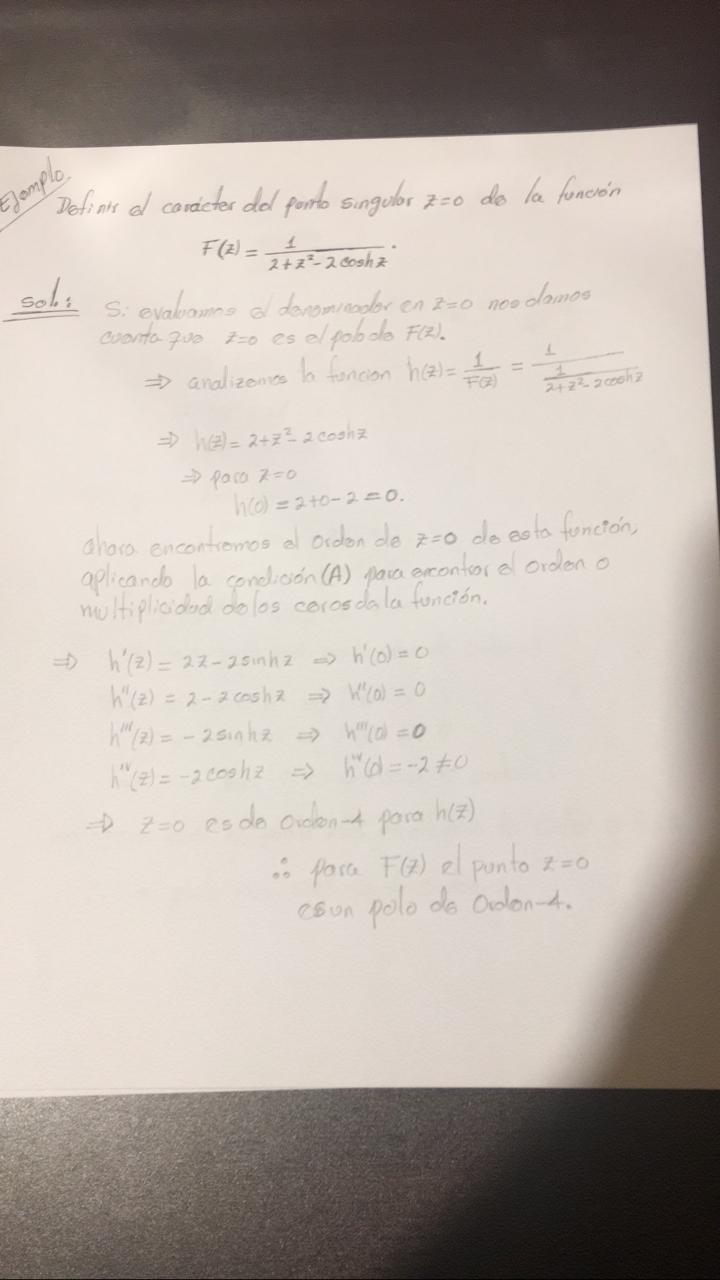 Ejemplo.
Definir el carácter del punto singular z=0 de la función
F(z) = 1/(2+z²-2coshz).
sol: Si evaluamos el denominador en z=0 nos damos
cuenta que z=0 es el polo de F(z).
⇒ analizemos la funcion h(z) = 1/F(z) = 1/(1/(2+z²-2coshz))
⇒ h(z) = 2+z²-2coshz
⇒ para z=0
h(0) = 2+0-2 = 0.
ahora encontremos el orden de z=0 de esta función,
aplicando la condición (A) para encontrar el orden o
multiplicidad de los ceros de la función.
⇒ h'(z) = 2z-2sinhz ⇒ h'(0) = 0
h''(z) = 2-2coshz ⇒ h''(0) = 0
h'''(z) = -2sinhz ⇒ h'''(0) = 0
h''''(z) = -2coshz ⇒ h''''(0) = -2 ≠ 0
⇒ z=0 es de orden-4 para h(z)
∴ para F(z) el punto z=0
es un polo de orden-4.